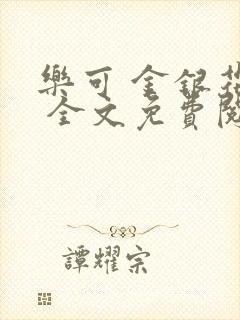 樂可 金銀花
全文免費閱
譚耀宗